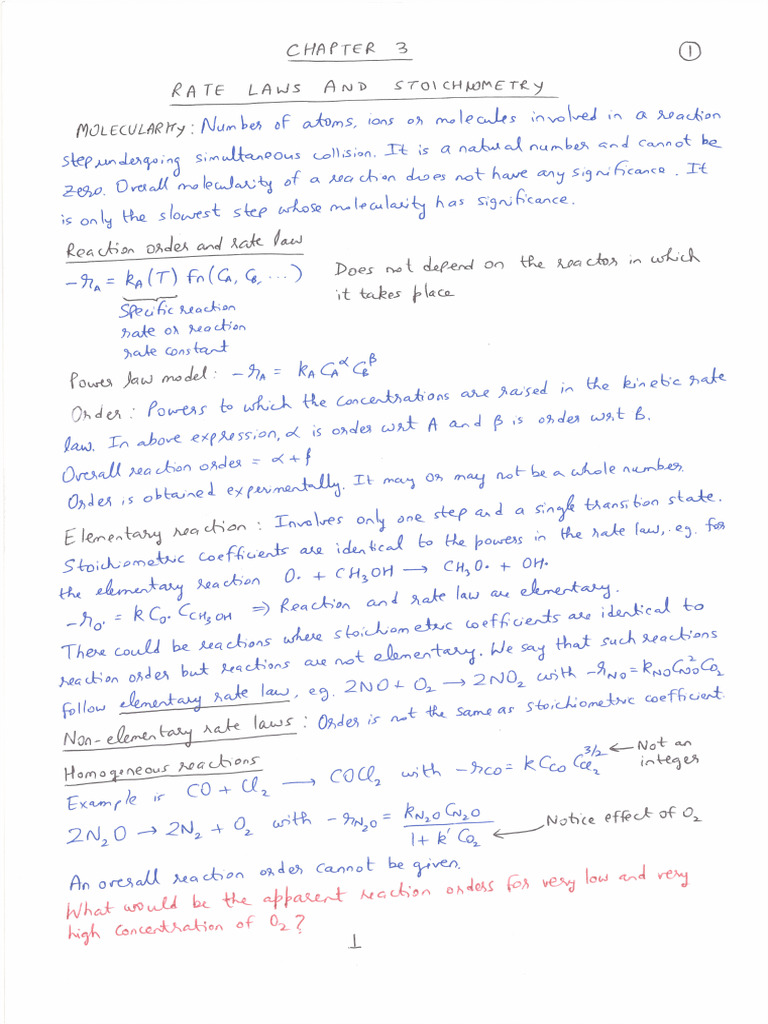 CHAPTER 3
①
RATE LAWS AND STOICHIOMETRY
MOLECULARITY: Number of atoms, ions or molecules involved in a reaction
step undergoing simultaneous collision. It is a natural number and cannot be
zero. Overall molecularity of a reaction does not have any significance. It
is only the slowest step whose molecularity has significance.
Reaction order and rate law
-r_A = k_A(T) Fn(C_A, C_B, ...)
Does not depend on the reactor in which
it takes place
Specific reaction
rate or reaction
rate constant
Power law model: -r_A = k_A C_A^α C_B^β
Order: Powers to which the concentrations are raised in the kinetic rate
law. In above expression, α is order wrt A and β is order wrt B.
Overall reaction order = α + β
Order is obtained experimentally. It may or may not be a whole number.
Elementary reaction: Involves only one step and a single transition state.
Stoichiometric coefficients are identical to the powers in the rate law, eg. for
the elementary reaction O· + CH₃OH → CH₃O· + OH·
-r_O· = k C_O· C_CH₃OH ⇒ Reaction and rate law are elementary.
There could be reactions where stoichiometric coefficients are identical to
reaction order but reactions are not elementary. We say that such reactions
follow elementary rate law, eg. 2NO + O₂ → 2NO₂ with -r_NO = k_NO C_NO² C_O₂
Non-elementary rate laws: Order is not the same as stoichiometric coefficient.
Homogeneous reactions
Example is CO + Cl₂ → COCl₂ with -r_CO = k C_CO C_Cl₂^3/2 ← Not an
integer
2N₂O → 2N₂ + O₂ with -r_N₂O = k_N₂O C_N₂O / 1 + k' C_O₂ ← Notice effect of O₂
An overall reaction order cannot be given.
What would be the apparent reaction orders for very low and very
high concentration of O₂?
1